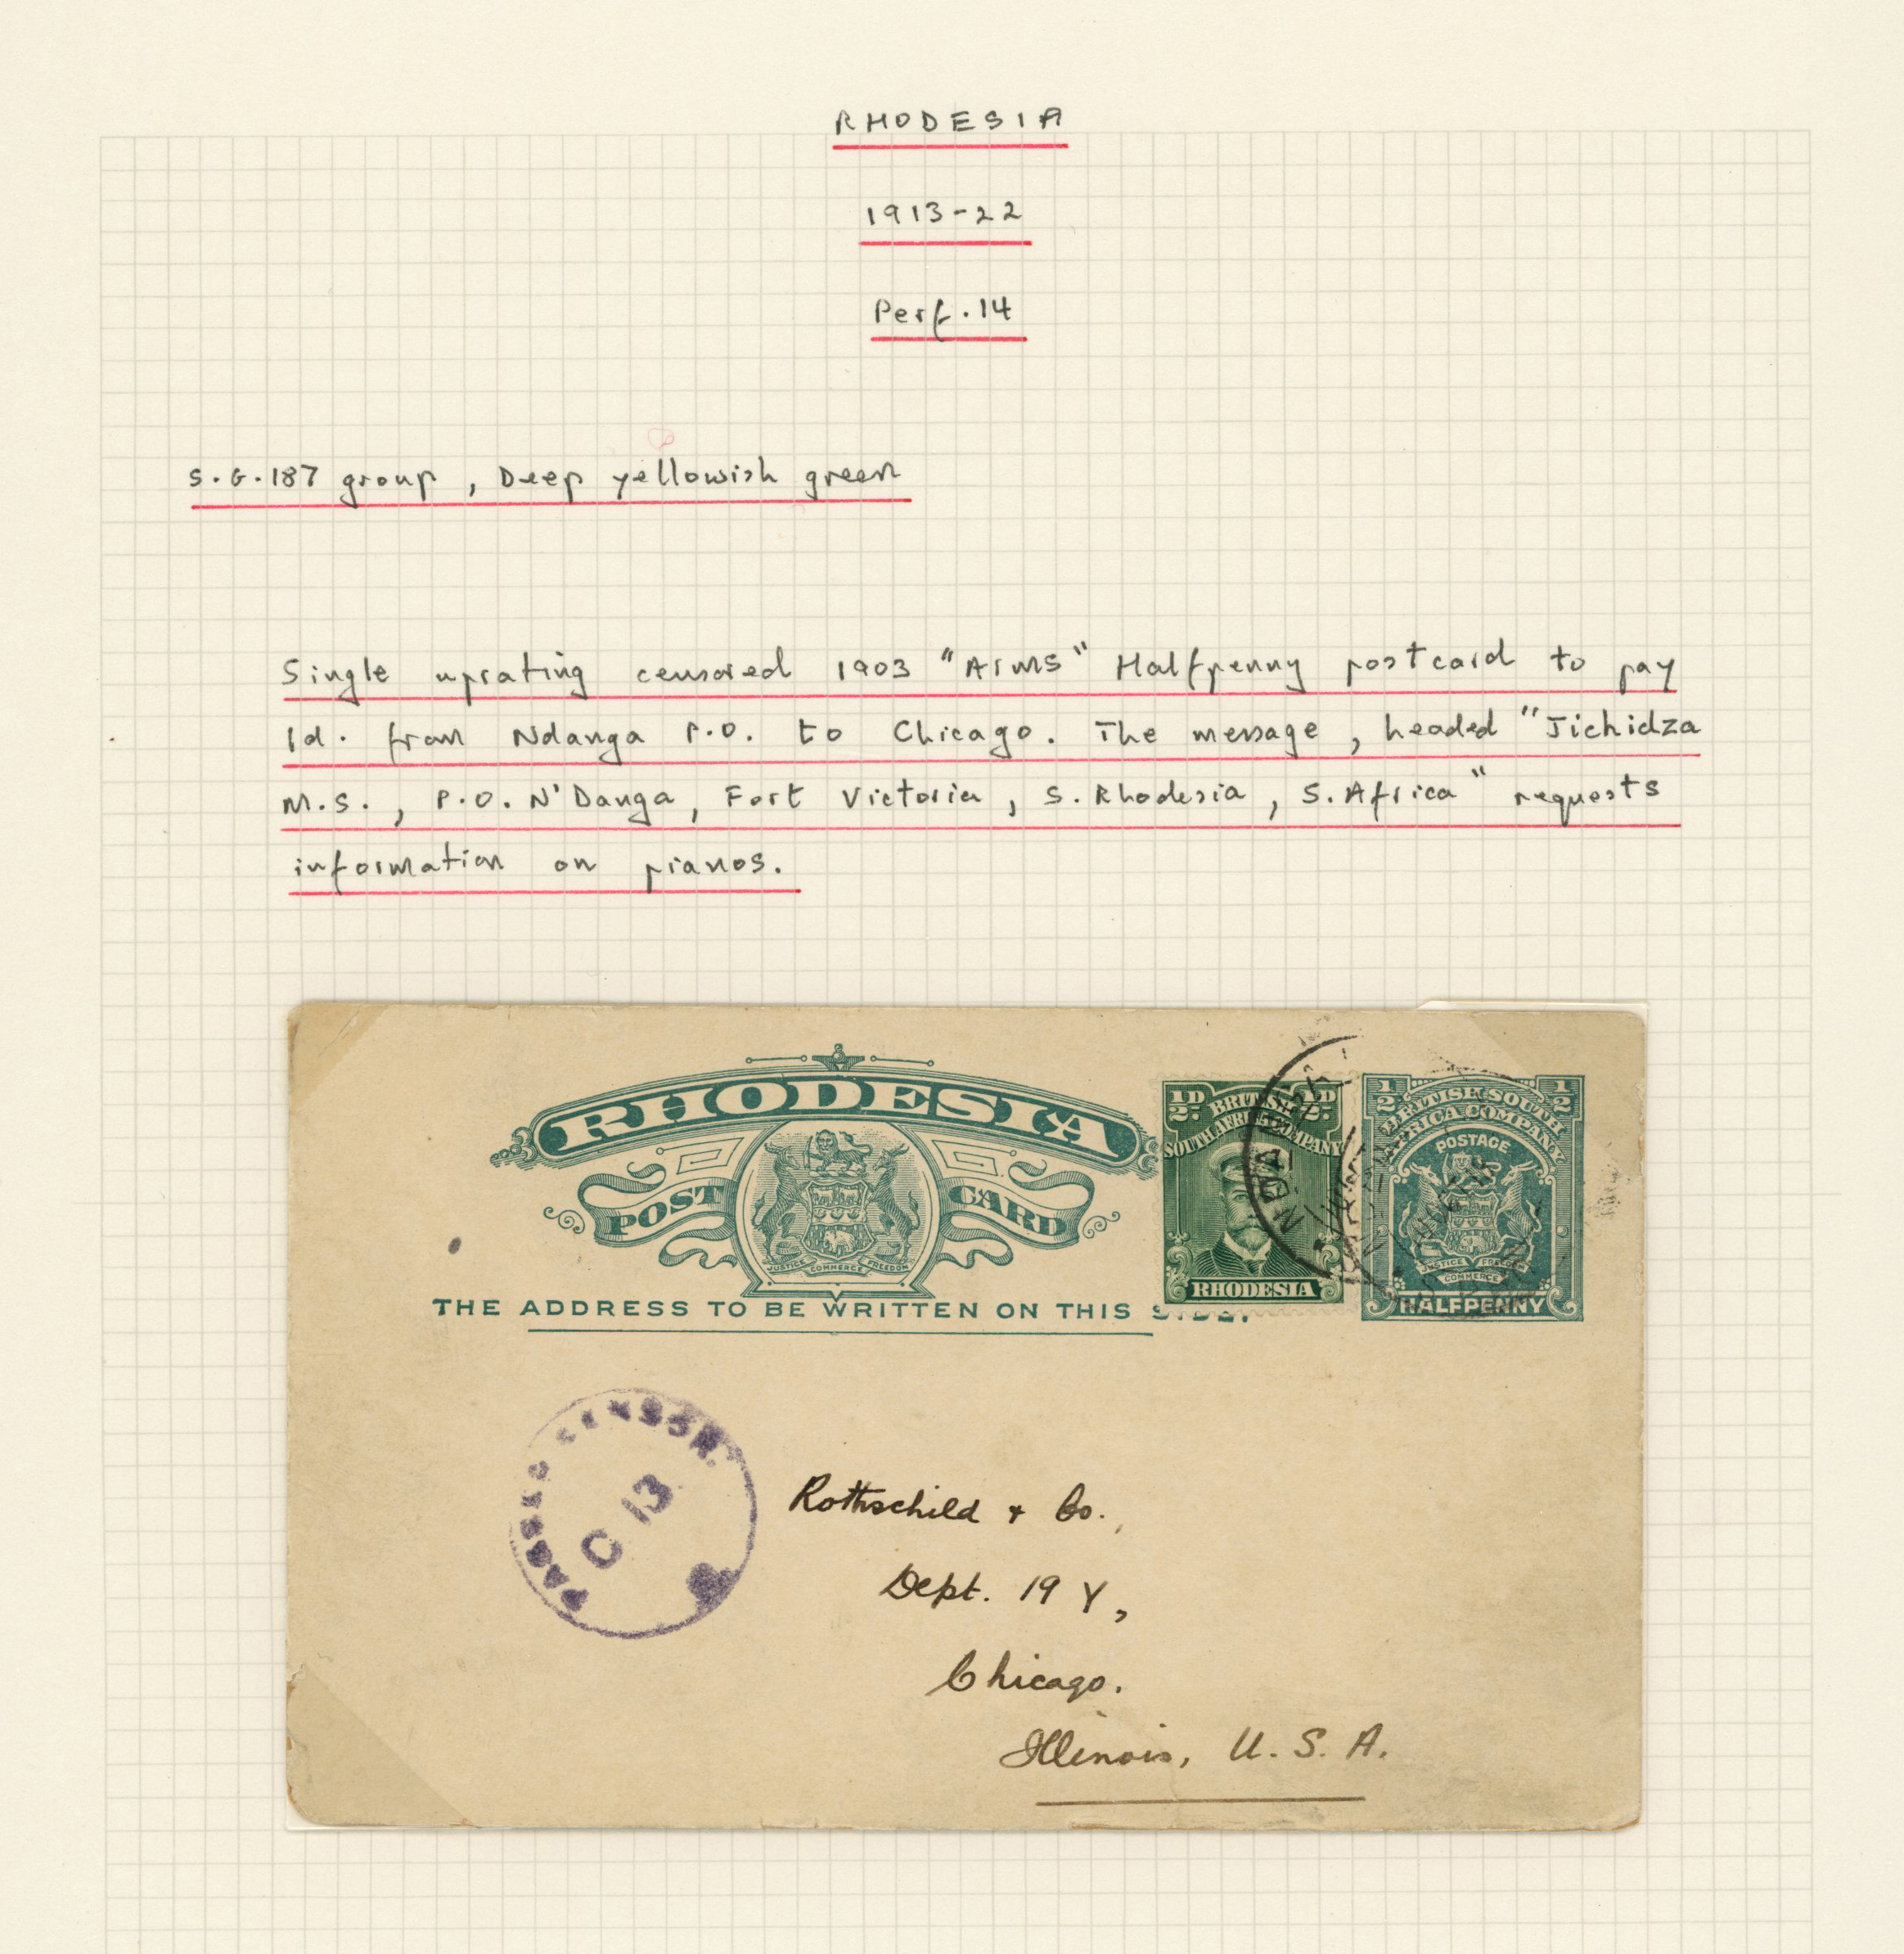 RHODESIA
1913-22
Perf. 14
S.G. 187 group, Deep yellowish green
Single uprating censored 1903 "Arms" Halfpenny postcard to pay
1d. from Ndanga P.O. to Chicago. The message, headed "Jichidza
M.S., P.O. N'Danga, Fort Victoria, S. Rhodesia, S. Africa" requests
information on pianos.
RHODESIA
POST CARD
JUSTICE COMMERCE FREEDOM
THE ADDRESS TO BE WRITTEN ON THIS
½D ½D
BRITISH
SOUTH AFRICA COMPANY
RHODESIA
½ ½
BRITISH SOUTH
AFRICA COMPANY
POSTAGE
JUSTICE FREEDOM
COMMERCE
HALFPENNY
NDA
PASSED CENSOR.
C 13
Rothschild + Co.,
Dept. 19 Y,
Chicago.
Illinois, U.S.A.